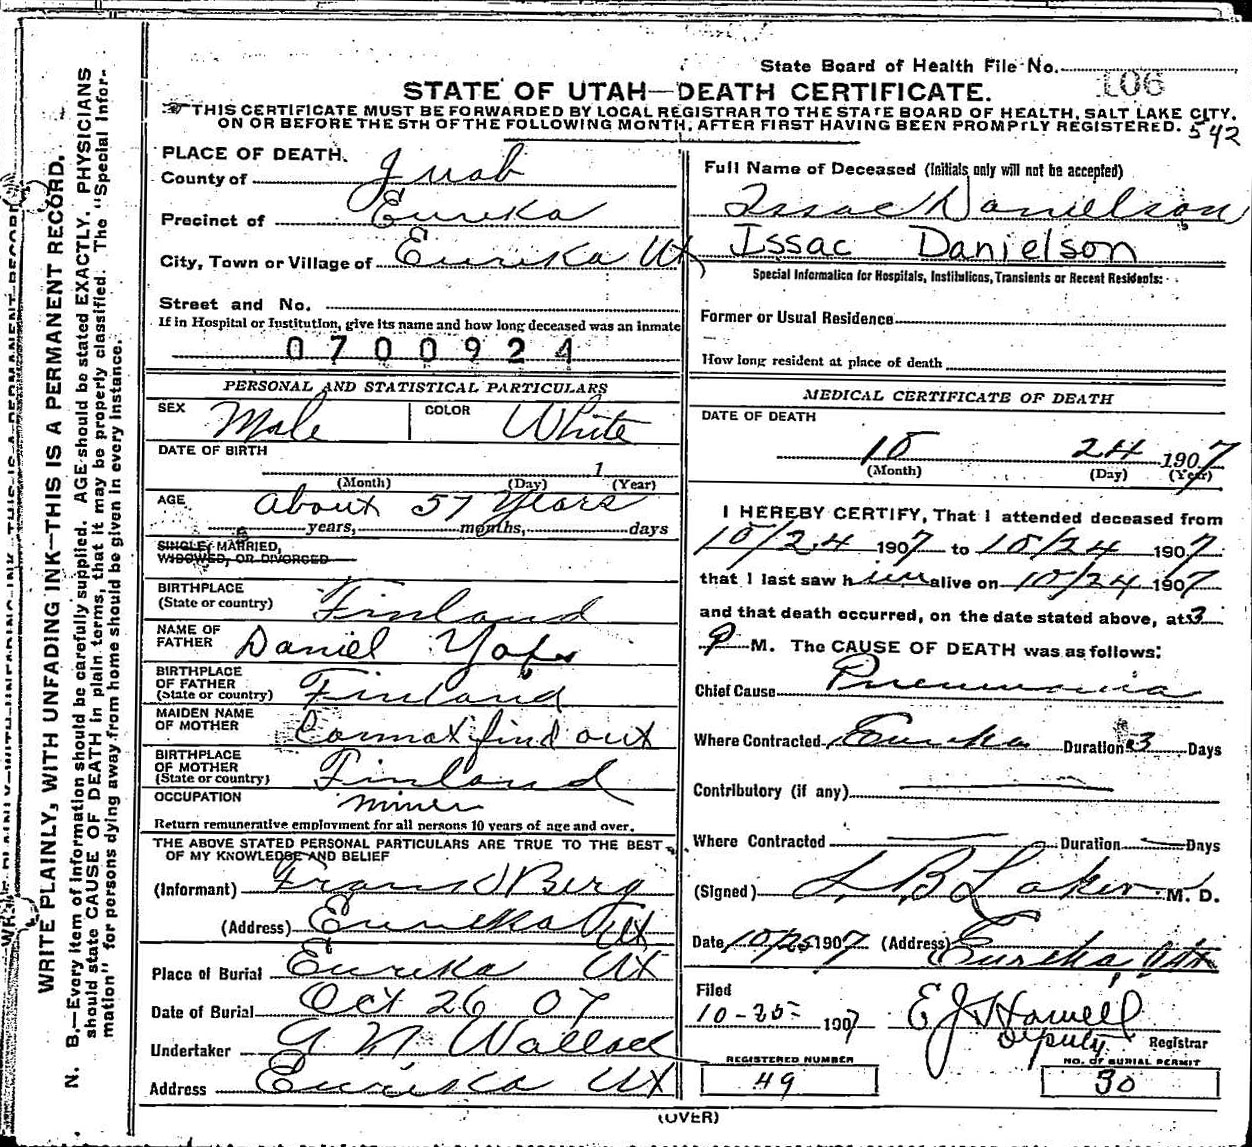 State Board of Health File No. 106
STATE OF UTAH—DEATH CERTIFICATE.
THIS CERTIFICATE MUST BE FORWARDED BY LOCAL REGISTRAR TO THE STATE BOARD OF HEALTH, SALT LAKE CITY,
ON OR BEFORE THE 5TH OF THE FOLLOWING MONTH, AFTER FIRST HAVING BEEN PROMPTLY REGISTERED. 542
WRITE PLAINLY, WITH UNFADING INK—THIS IS A PERMANENT RECORD.
N. B.—Every item of information should be carefully supplied. AGE should be stated EXACTLY. PHYSICIANS
should state CAUSE OF DEATH in plain terms, that it may be properly classified. The "Special Infor-
mation" for persons dying away from home should be given in every instance.
PLACE OF DEATH.
County of Juab
Precinct of Eureka
City, Town or Village of Eureka Ut
Street and No.
If in Hospital or Institution, give its name and how long deceased was an inmate
0700924
PERSONAL AND STATISTICAL PARTICULARS
SEX Male COLOR White
DATE OF BIRTH
1
(Month) (Day) (Year)
AGE About 57 Years
years, months, days
SINGLE, MARRIED,
WIDOWED, OR DIVORCED
BIRTHPLACE
(State or country) Finland
NAME OF
FATHER Daniel
BIRTHPLACE
OF FATHER
(State or country) Finland
MAIDEN NAME
OF MOTHER Connot find out
BIRTHPLACE
OF MOTHER
(State or country) Finland
OCCUPATION miner
Return remunerative employment for all persons 10 years of age and over.
THE ABOVE STATED PERSONAL PARTICULARS ARE TRUE TO THE BEST
OF MY KNOWLEDGE AND BELIEF
(Informant) Frans Berg
(Address) Eureka Ut
Place of Burial Eureka Ut
Date of Burial Oct 26 07
Undertaker A N Wallace
Address Eureka Ut
Full Name of Deceased (Initials only will not be accepted)
Issac Danielson
Issac Danielson
Special Information for Hospitals, Institutions, Transients or Recent Residents:
Former or Usual Residence
How long resident at place of death
MEDICAL CERTIFICATE OF DEATH
DATE OF DEATH
10 24 1907
(Month) (Day) (Year)
I HEREBY CERTIFY, That I attended deceased from
10/24 1907 to 10/24 1907
that I last saw him alive on 10/24 1907
and that death occurred, on the date stated above, at 3
P M. The CAUSE OF DEATH was as follows:
Chief Cause Pneumonia
Where Contracted Eureka Duration 3 Days
Contributory (if any)
Where Contracted Duration Days
(Signed) L B Laker M. D.
Date 10/25 1907 (Address) Eureka Utah
Filed
10-25- 1907 E J Howell
Deputy Registrar
REGISTERED NUMBER NO. OF BURIAL PERMIT
49 30
(OVER)